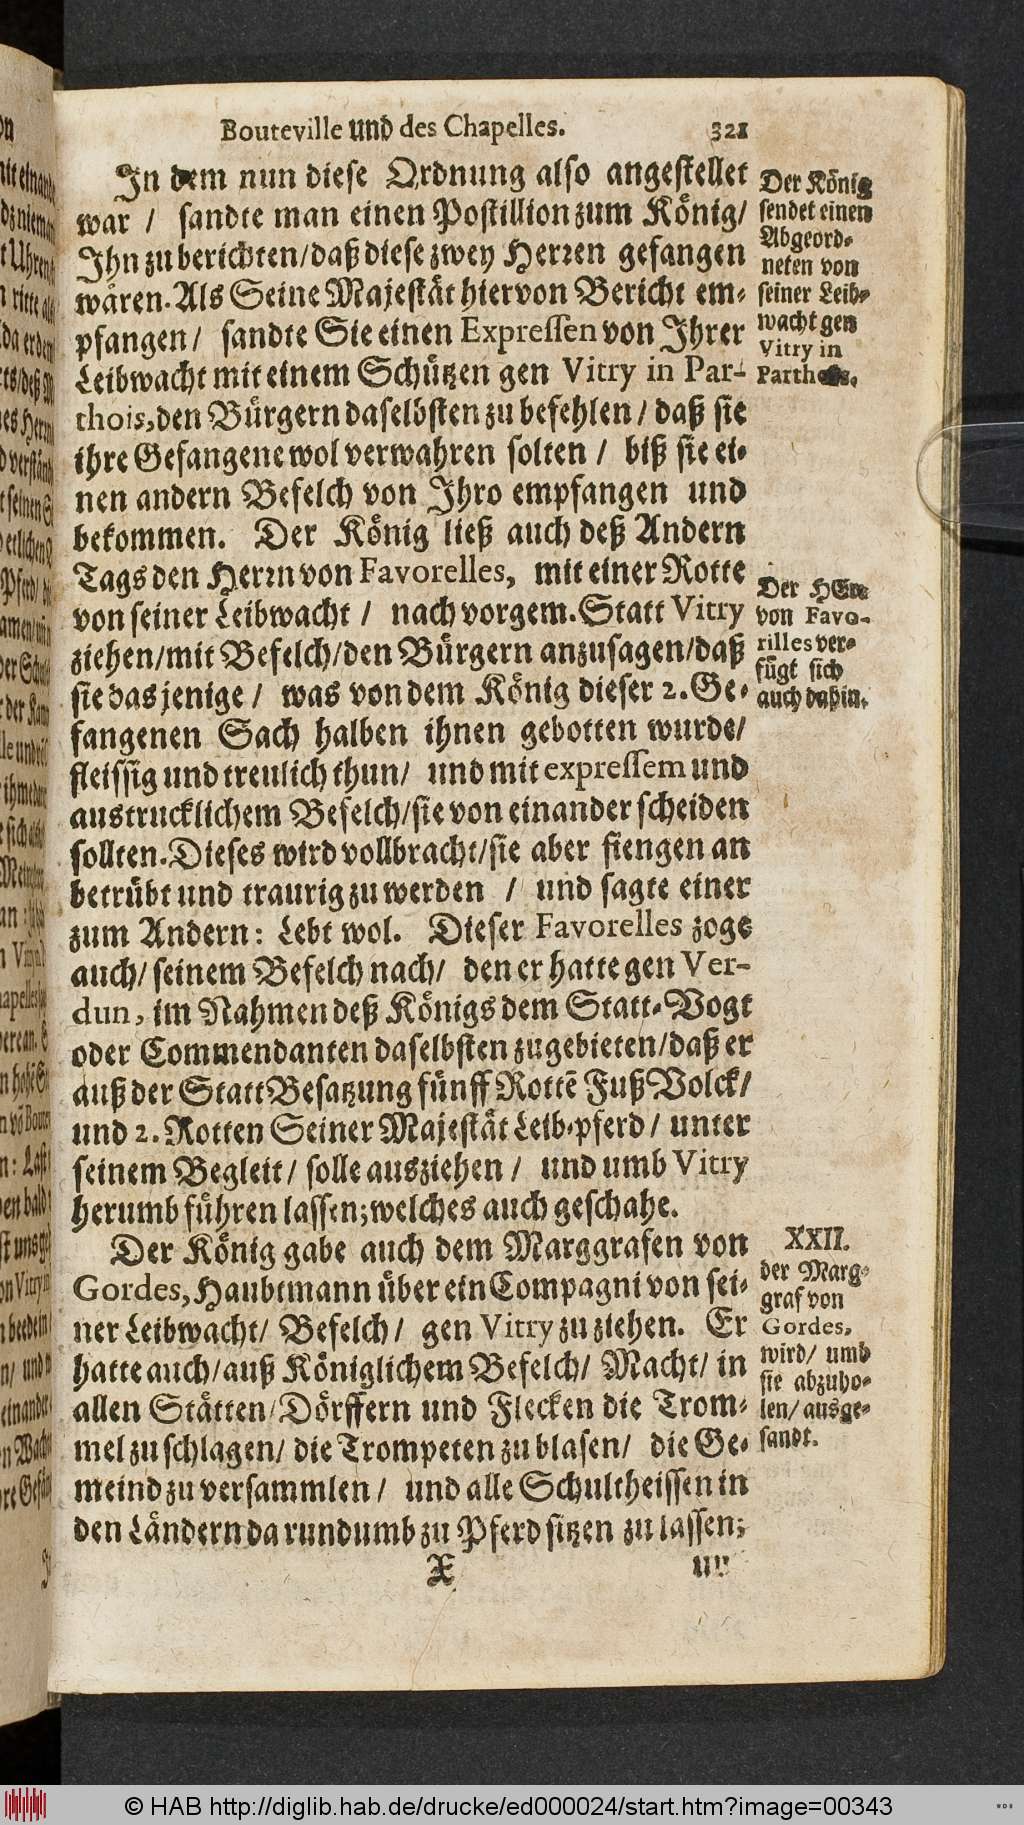 Bouteville und des Chapelles. 321
In dem nun diese Ordnung also angestellet
war / sandte man einen Postillion zum König/
Ihn zu berichten/daß diese zwey Herren gefangen
wären. Als Seine Majestät hiervon Bericht em-
pfangen / sandte Sie einen Expressen von Ihrer
Leibwacht mit einem Schützen gen Vitry in Par-
thois, den Bürgern daselbsten zu befehlen / daß sie
ihre Gefangene wol verwahren solten / biß sie ei-
nen andern Befelch von Ihro empfangen und
bekommen. Der König ließ auch deß Andern
Tags den Herrn von Favorelles, mit einer Rotte
von seiner Leibwacht / nach vorgem. Statt Vitry
ziehen/mit Befelch/den Bürgern anzusagen/daß
sie das jenige / was von dem König dieser 2. Ge-
fangenen Sach halben ihnen gebotten wurde/
fleissig und treulich thun/ und mit expressem und
austrucklichem Befelch/sie von einander scheiden
sollten. Dieses wird vollbracht/sie aber fiengen an
betrübt und traurig zu werden / und sagte einer
zum Andern: Lebt wol. Dieser Favorelles zoge
auch/ seinem Befelch nach/ den er hatte gen Ver-
dun, im Nahmen deß Königs dem Statt-Vogt
oder Commendanten daselbsten zugebieten/daß er
auß der Statt Besatzung fünff Rottē Fuß Volck/
und 2. Rotten Seiner Majestät Leib-pferd / unter
seinem Begleit / solle ausziehen / und umb Vitry
herumb führen lassen; welches auch geschahe.
Der König gabe auch dem Marggrafen von
Gordes, Haubtmann über ein Compagni von sei-
ner Leibwacht/ Befelch / gen Vitry zu ziehen. Er
hatte auch/auß Königlichem Befelch/ Macht/ in
allen Stätten/Dörffern und Flecken die Trom-
mel zu schlagen/ die Trompeten zu blasen/ die Ge-
meind zu versammlen / und alle Schultheissen in
den Ländern da rund umb zu Pferd sitzen zu lassen;
X un
Der König
sendet einen
Abgeord-
neten von
seiner Leib-
wacht gen
Vitry in
Parthois.
Der HErr
von Favo-
rilles ver-
fügt sich
auch dahin.
XXII.
der Marg-
graf von
Gordes,
wird/ umb
sie abzuho-
len/ ausge-
sandt.
© HAB http://diglib.hab.de/drucke/ed000024/start.htm?image=00343